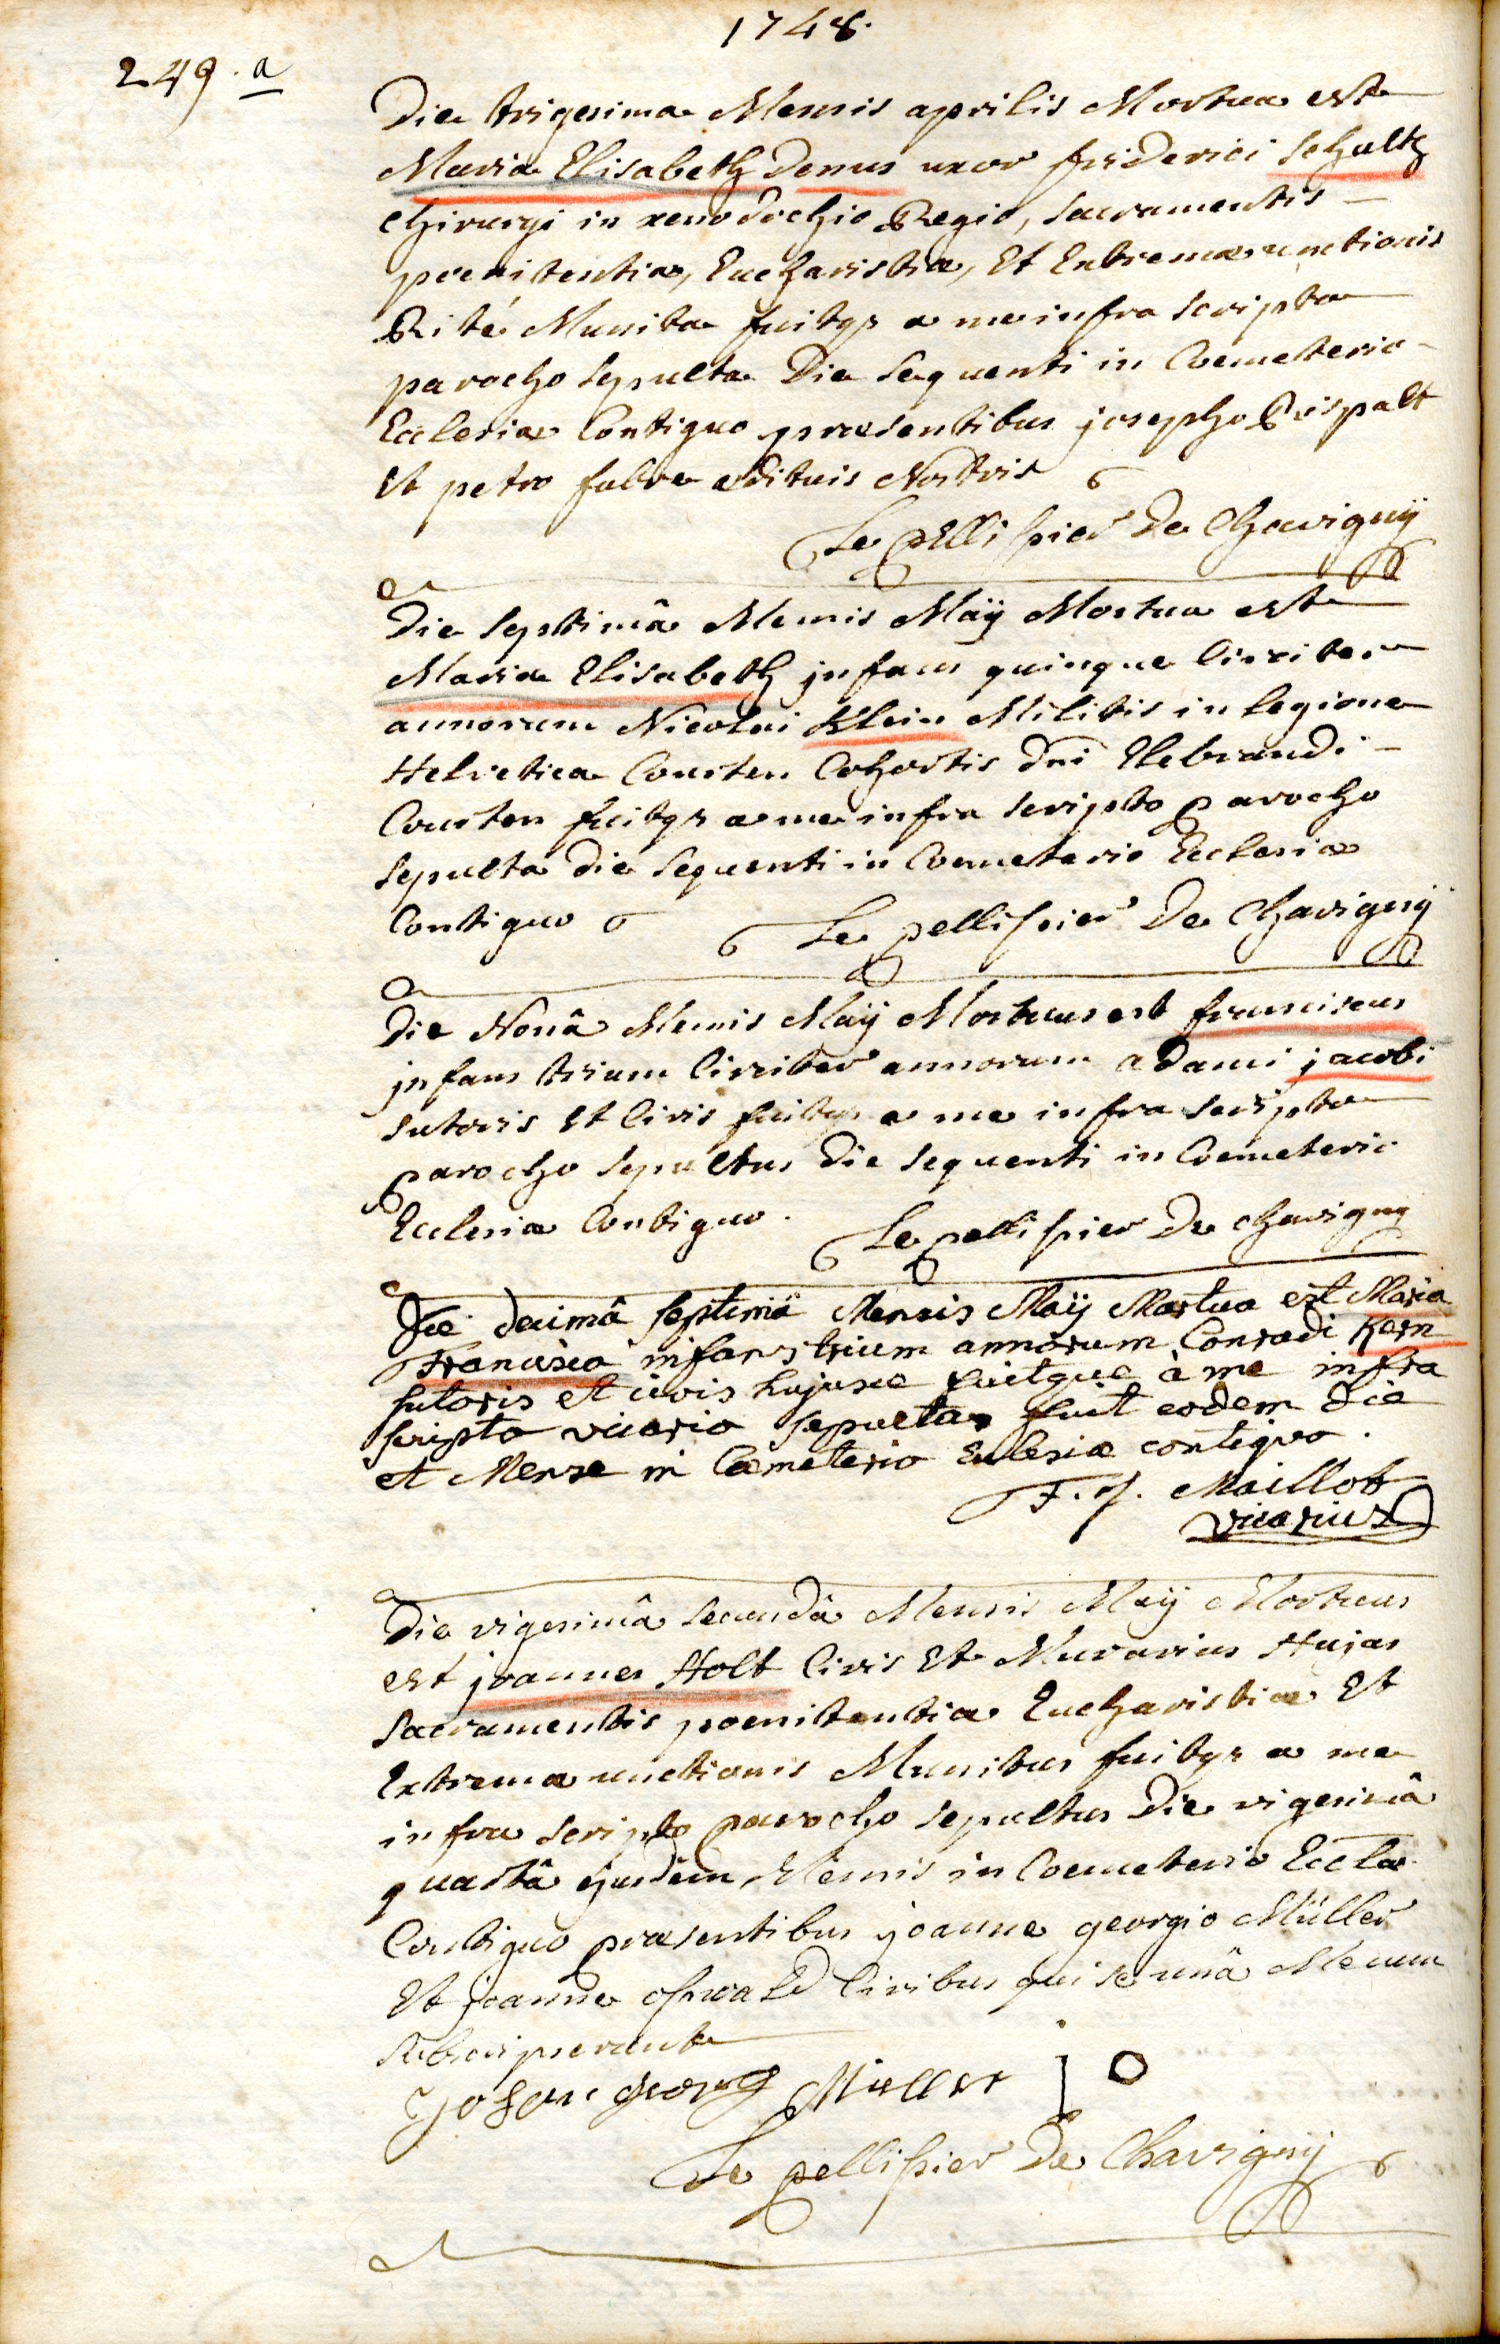 1748.
249. a
Die trigesima Mensis aprilis Mortua est
Maria Elisabeth Denus uxor friderici Schultz
Chirurgi in xenodochio Regio, Sacramentis
poenitentiæ, Eucharistiæ, Et Extremæ unctionis
Rité Munita fuitqe a me infra scripto
parocho sepulta Die sequenti in Coemeterio
Ecclesiæ Contiguo præsentibus josepho Rispalt
Et petro fabre ædituis Nostris
Le pellissier De Chavignÿ
Die septimâ Mensis Maÿ Mortua est
Maria Elisabeth jnfans quinque Circiter
annorum Nicolai Klein Militis in legione
Helvetica Courten Cohortis Dni Elebrandi
Courten fuitqe a me infra scripto parocho
sepulta die sequenti in Coemeterio Ecclesiæ
Contiguo Le pellissier De Chavignÿ
Die Nonâ Mensis Maÿ Mortuus est franciscus
jnfans trium Circiter annorum adami jacobi
sutoris Et Civis fuitqe a me infra scripto
parocho sepultus Die sequenti in Coemeterio
Ecclesiæ Contiguo. Le pellissier De Chavigny
Die decimâ septimâ Mensis Maÿ Mortua est Maria
Francisca infans trium annorum Conradi Kern
sutoris et civis hujusce fuitque à me infra
scripto vicario sepulta fuit eodem die
et Mense in Cæmeterio Eclesiæ contiguo.
F. J. Maillot
vicarius
Die vigesimâ secundâ Mensis Maÿ Mortuus
est joannes Holt Civis Et Murarius Hujas
Sacramentis poenitentiæ Eucharistiæ Et
Extremæ unctionis Munitus fuitqe a me
infra scripto parocho sepultus Die vigesimâ
quartâ ejusdem Mensis in Coemeterio Eccla
Contiguo præsentibus joanne georgio Müller
Et joanne oswald Civibus qui se unâ Mecum
subscripserunt
Johan georg Müller J O
Le pellissier De Chavignÿ